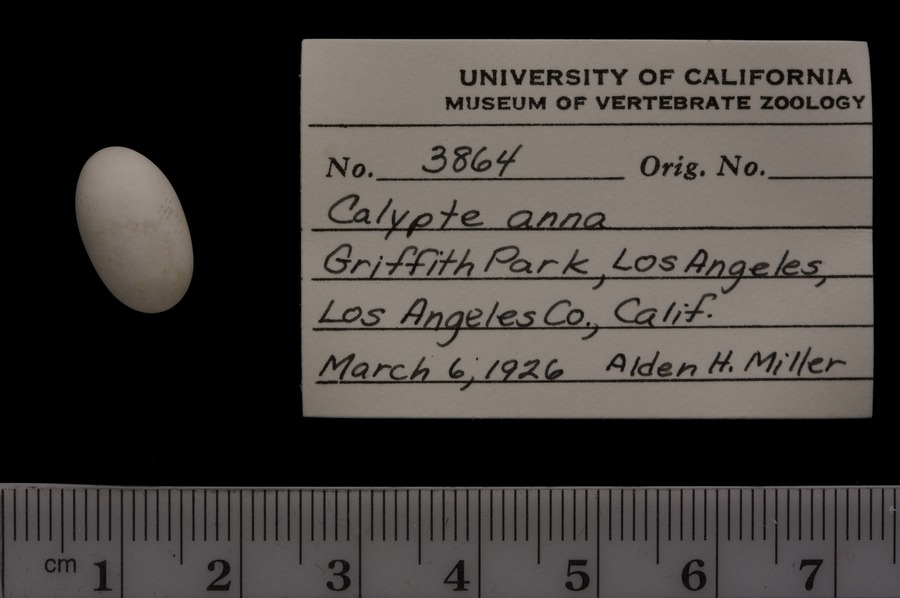 UNIVERSITY OF CALIFORNIA
MUSEUM OF VERTEBRATE ZOOLOGY
No. 3864 Orig. No.
Calypte anna
Griffith Park, Los Angeles,
Los Angeles Co., Calif.
March 6, 1926 Alden H. Miller
cm 1 2 3 4 5 6 7